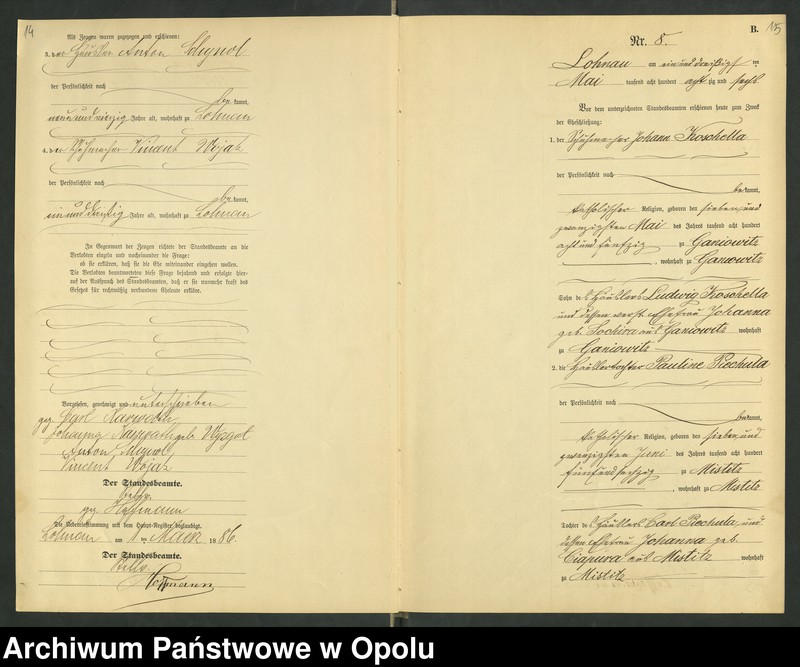 14
Als Zeugen waren zugezogen und erschienen:
3. der Häusler Anton
der Persönlichkeit nach
be kannt,
neunundvierzig Jahre alt, wohnhaft zu Lohnau
4. der Schuhmacher Vincent Wojak
der Persönlichkeit nach
be kannt,
einunddreißig Jahre alt, wohnhaft zu Lohnau
In Gegenwart der Zeugen richtete der Standesbeamte an die
Verlobten einzeln und nacheinander die Frage:
ob sie erklären, daß sie die Ehe miteinander eingehen wollen.
Die Verlobten beantworteten diese Frage bejahend und erfolgte hier-
auf der Ausspruch des Standesbeamten, daß er sie nunmehr kraft des
Gesetzes für rechtmäßig verbundene Eheleute erkläre.
Vorgelesen, genehmigt und unterschrieben
gez. Carl
Johanna geb.
Anton
Vincent Wojak
Der Standesbeamte.
gez. Hoffmann
Die Uebereinstimmung mit dem Haupt-Register beglaubigt.
Lohnau am 1 ten März 1886.
Der Standesbeamte.
Hoffmann
B. 15
Nr. 8.
Lohnau am ein und dreißigsten
Mai tausend acht hundert acht zig und sechs
Vor dem unterzeichneten Standesbeamten erschienen heute zum Zweck
der Eheschließung:
1. der Schuhmacher Johann Koschella
der Persönlichkeit nach
be kannt,
katholischer Religion, geboren den sieben und
zwanzigsten Mai des Jahres tausend acht hundert
acht und fünfzig zu Ganiowitz
, wohnhaft zu Ganiowitz
Sohn des Häuslers Ludwig Koschella
und dessen verst. Ehefrau Johanna
geb. Sochira aus Ganiowitz wohnhaft
zu Ganiowitz
2. die Häuslertochter Pauline Piechula
der Persönlichkeit nach
be kannt,
katholischer Religion, geboren den sieben und
zwanzigsten Juni des Jahres tausend acht hundert
fünf und sechzig zu Mistitz
, wohnhaft zu Mistitz
Tochter des Häuslers Carl Piechula und
dessen Ehefrau Johanna geb.
Ciapura aus Mistitz wohnhaft
zu Mistitz
Archiwum Państwowe w Opolu